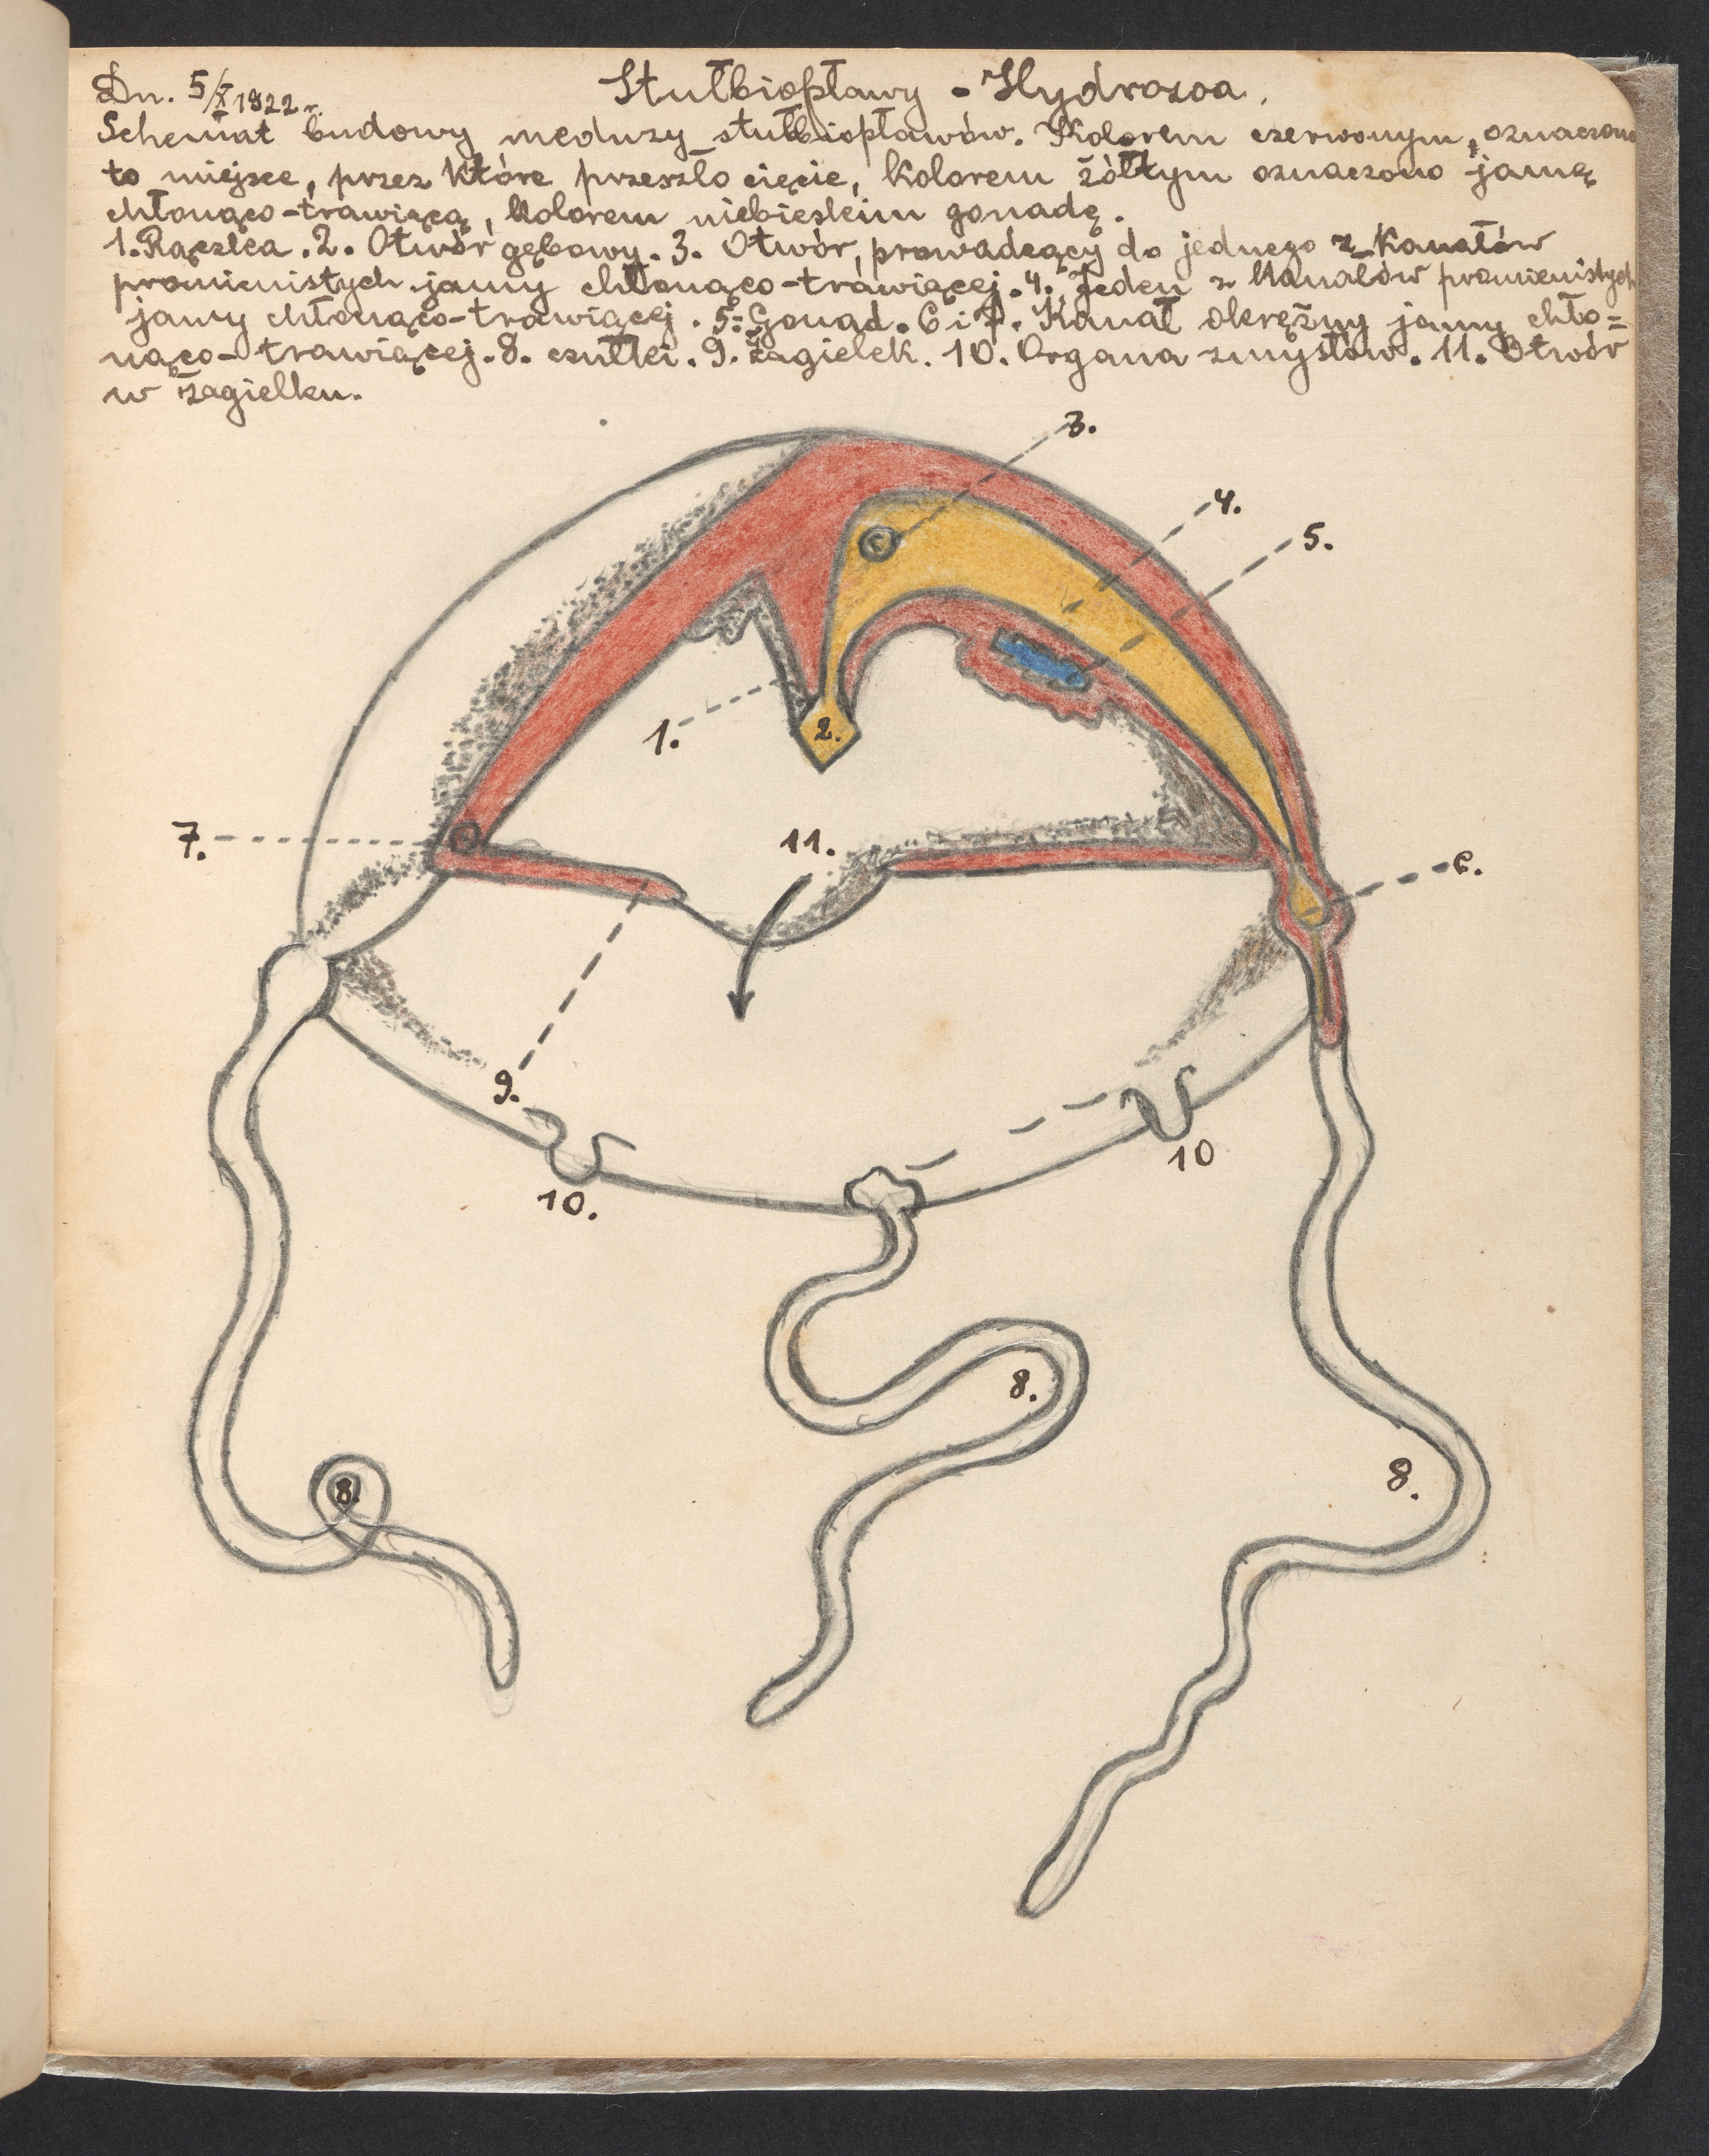 Dn. 5/X 1922 r.
Stułbiopławy - Hydrozoa.
Schemat budowy meduzy stułbiopławów. Kolorem czerwonym, oznaczono
to miejsce, przez które przeszło cięcie, kolorem żółtym oznaczono jamę
chłonąco-trawiącą, kolorem niebieskim gonadę.
1. Rączka. 2. Otwór gębowy. 3. Otwór, prowadzący do jednego z kanałów
promienistych jamy chłonąco-trawiącej. 4. Jeden z kanałów promienistych
jamy chłonąco-trawiącej. 5. Gonad. 6 i 7. Kanał okrężny jamy chło=
nąco-trawiącej. 8. czułki. 9. Żagielek. 10. Organa zmysłów. 11. Otwór
w żagielku.
3.
4.
5.
1.
2.
7.
11.
6.
9.
10.
10
8.
8.
8.